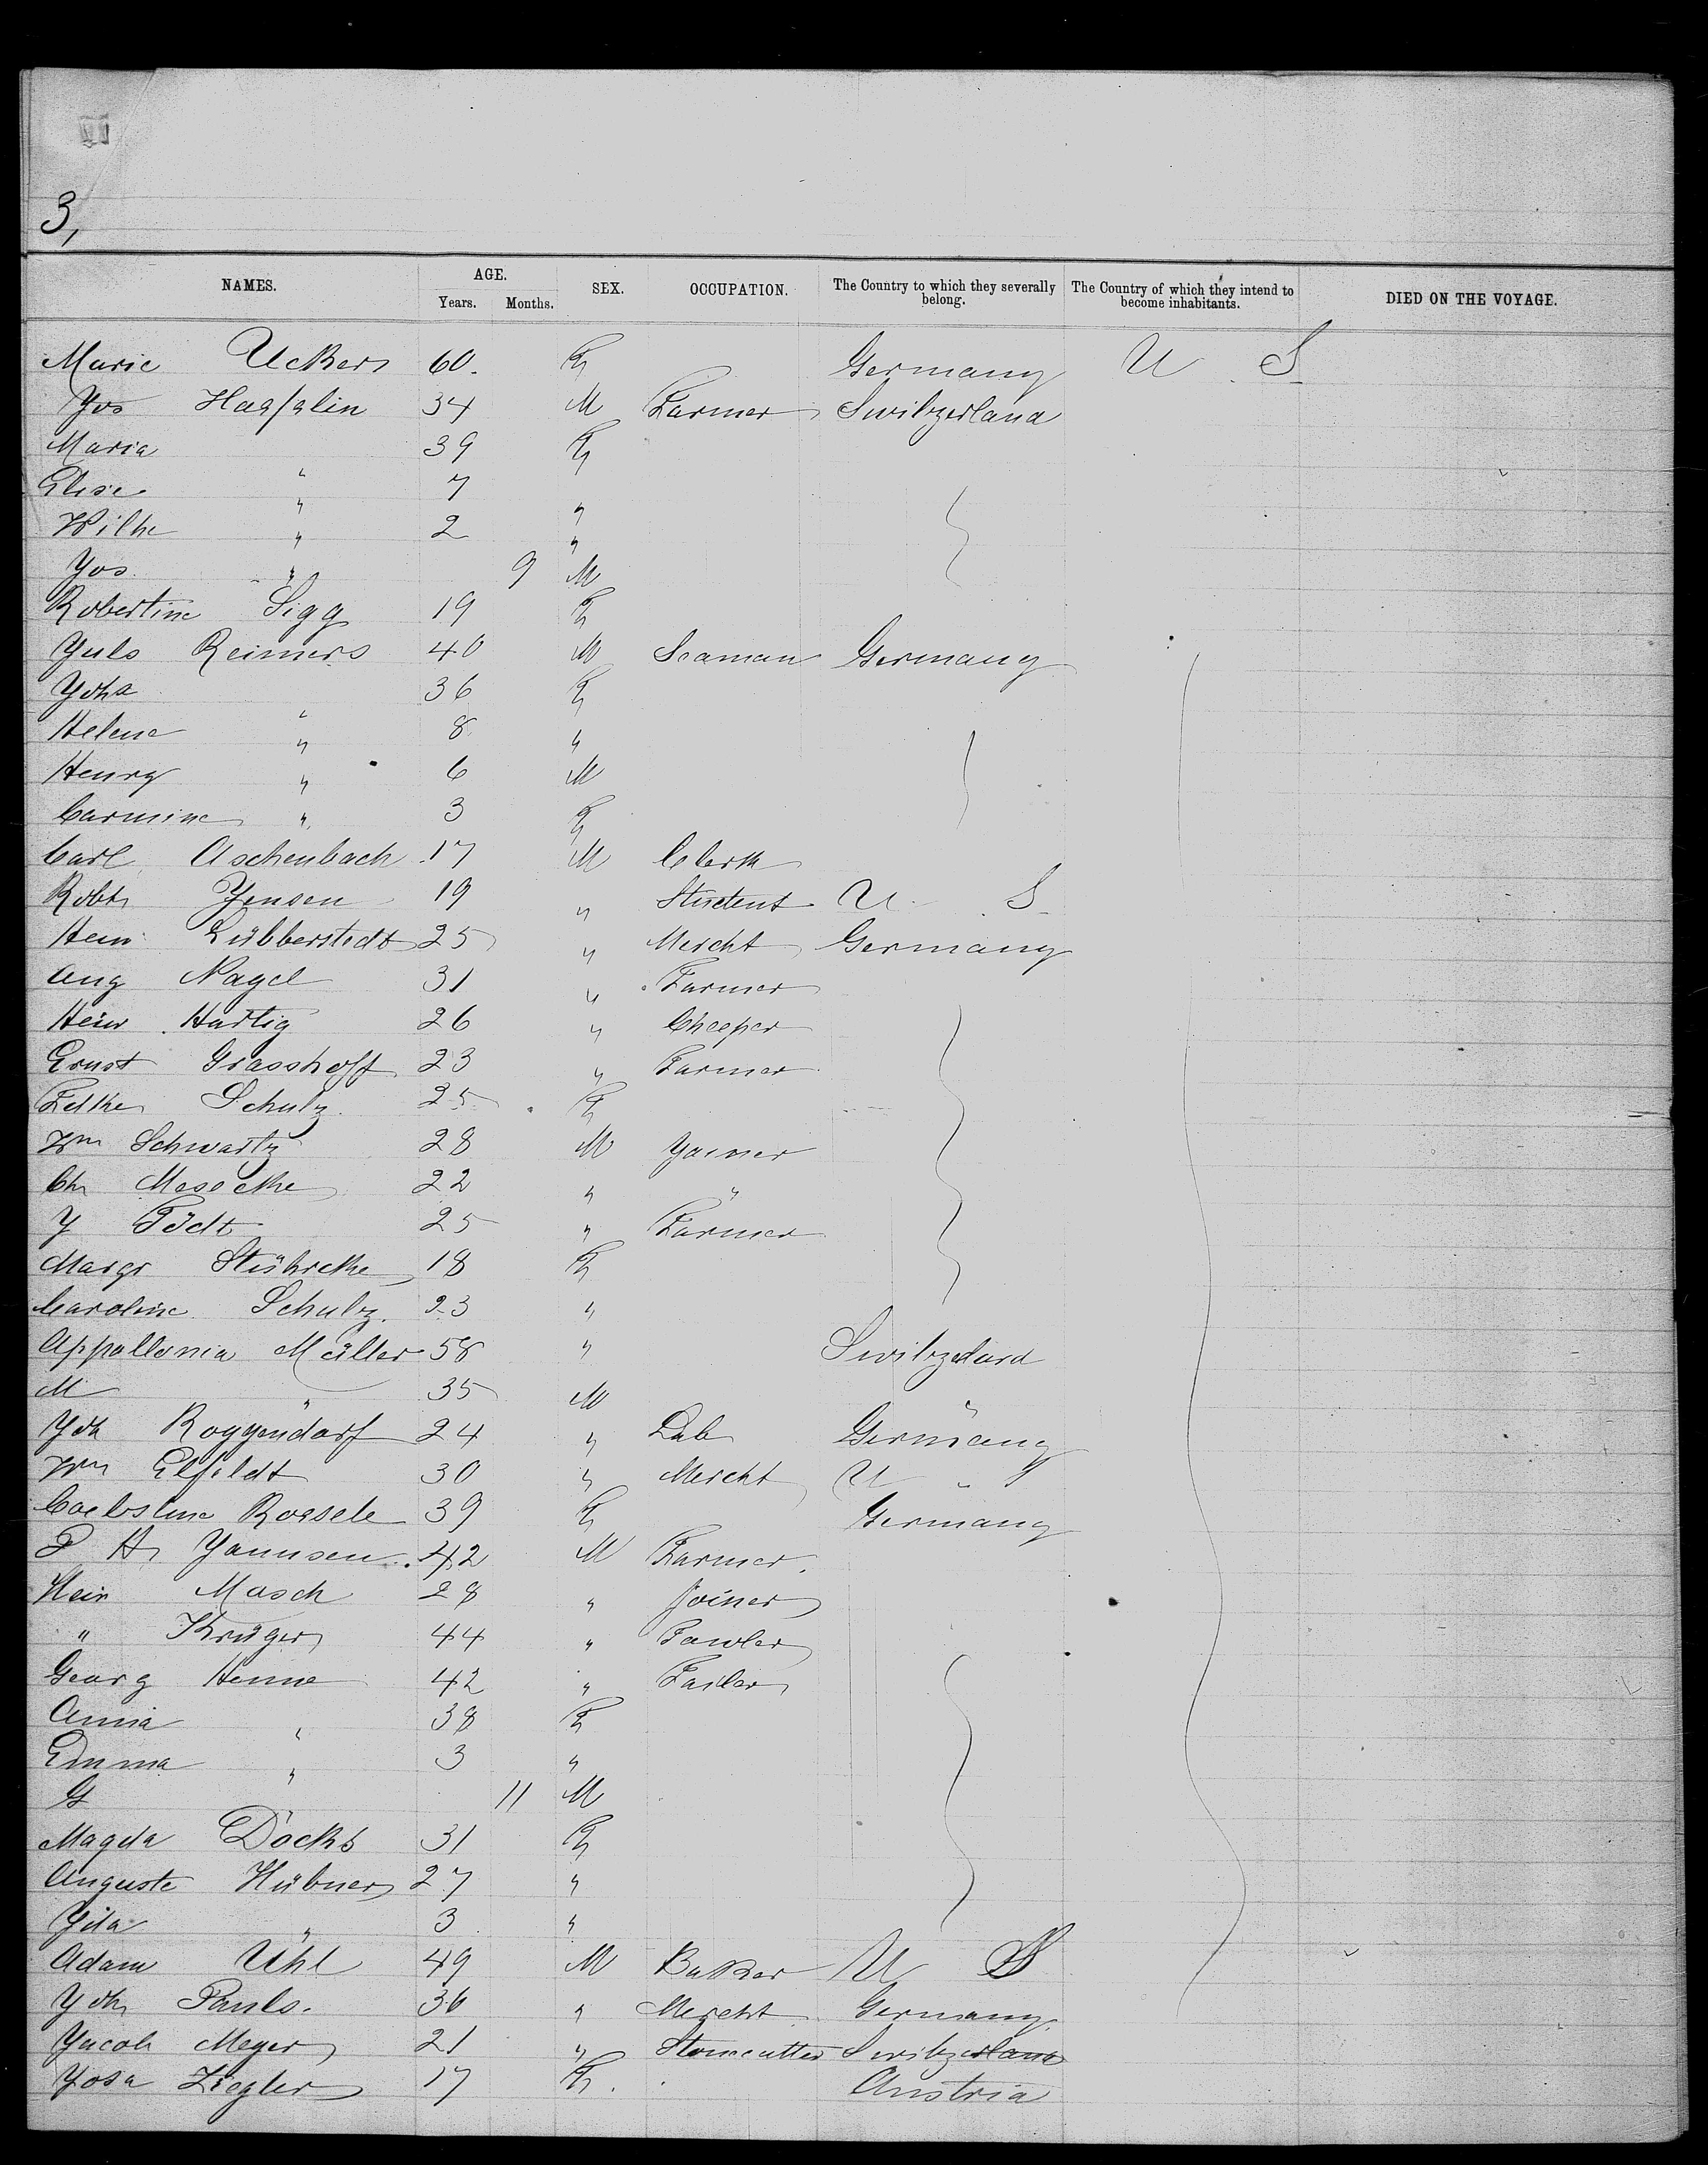 3,
NAMES. AGE. SEX. OCCUPATION. The Country to which they severally belong. The Country of which they intend to become inhabitants. DIED ON THE VOYAGE.
Years. Months.
Marie Uckers 60. F Germany U S
Jos Haefelin 34 M Farmer Switzerland
Maria 39 F
Elise " 7 "
Wilhe " 2 "
Jos " 9 M
Robertine Sigg 19 F
Juls Reimers 40 M Seaman Germany
Joha " 36 F
Helene " 8 "
Henry " 6 M
Carmine " 3 F
Carl Aschenbach 17 M Clerk
Robt Jensen 19 " Student U S
Hein Lübberstedt 25 " Mercht Germany
Aug Nagel 31 " Farmer
Hein Hartig 26 "
Ernst Grasshoff 23 " Farmer
Schulz 25 F
Wm Schwartz 28 M Joiner
Ch Mesecke 22 " "
J Tödt 25 " Farmer
Margr 18 F
Caroline Schulz. 23 "
Appallonia Müller 58 " Switzerland
M " 35 M "
Joh Roggendorf 24 " Lab Germany
Wm Elfeldt 30 " Mercht U S
Roesele 39 F Germany
P H Jannsen 42 M Farmer
Hein Masch 28 " Joiner
" Krüger 44 "
Georg Henne 42 " Tailor
Anna " 38 F
Emma " 3 "
G 11 M
Magda Döcks 31 F
Auguste Hübner 27 "
Ida " 3 "
Adam Uhl 49 M Baker U S
Joh Pauls. 36 " Mercht Germany
Jacob Meyer 21 " Stonecutter Switzerland
Josa Ziegler 17 F. Austria